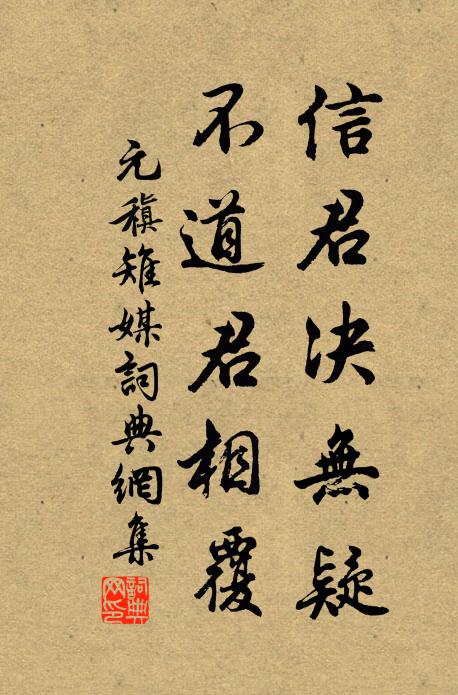 信君决無疑
不道君相覆
元稹雉媒詞典網集
詞典网印